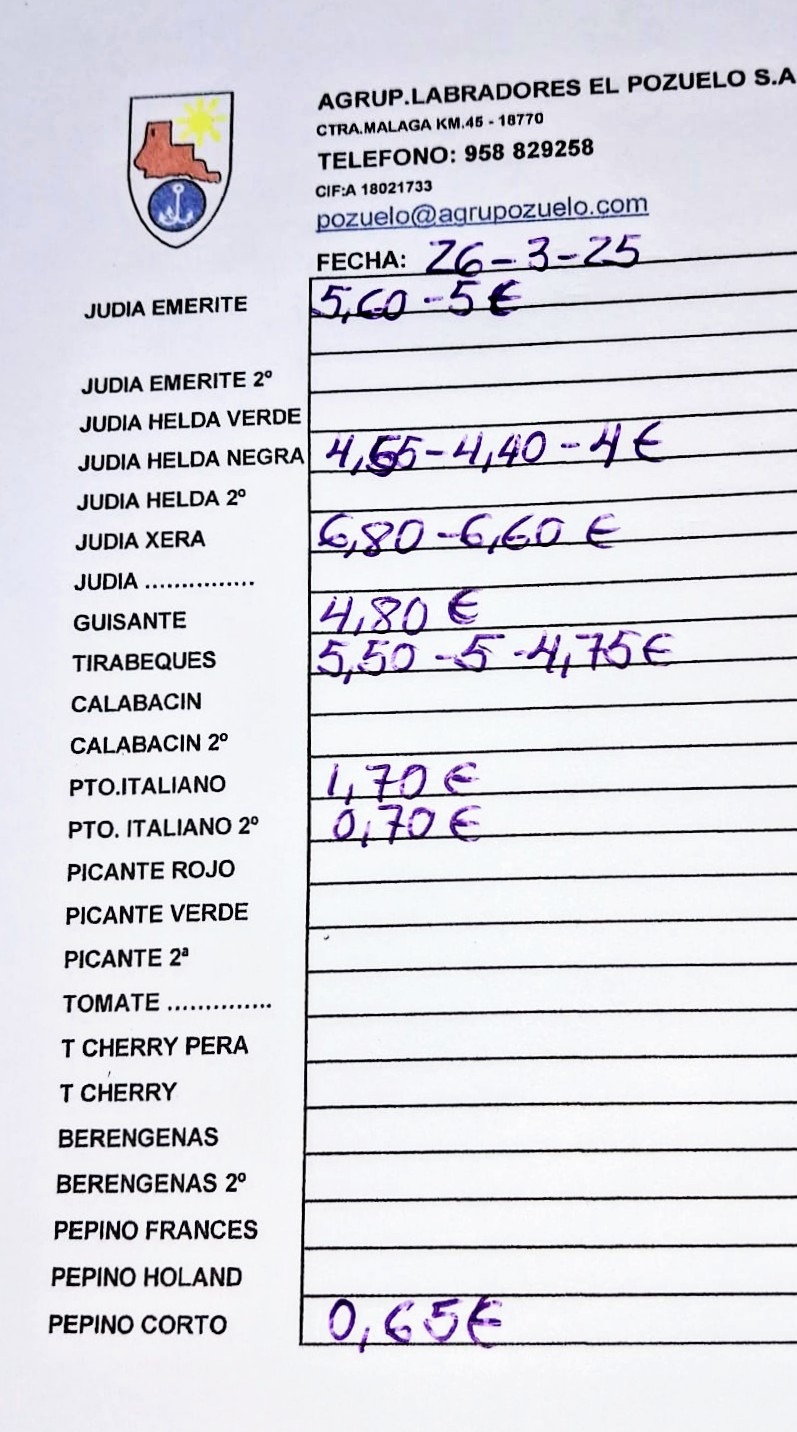 AGRUP.LABRADORES EL POZUELO S.A
CTRA.MALAGA KM.45 - 18770
TELEFONO: 958 829258
CIF:A 18021733
pozuelo@agrupozuelo.com
FECHA: 26-3-25
JUDIA EMERITE 5,60 - 5 €
JUDIA EMERITE 2º
JUDIA HELDA VERDE
JUDIA HELDA NEGRA 4,65 - 4,40 - 4 €
JUDIA HELDA 2º
JUDIA XERA 6,80 - 6,60 €
JUDIA ...............
GUISANTE 4,80 €
TIRABEQUES 5,50 - 5 - 4,75 €
CALABACIN
CALABACIN 2º
PTO.ITALIANO 1,70 €
PTO. ITALIANO 2º 0,70 €
PICANTE ROJO
PICANTE VERDE
PICANTE 2ª
TOMATE ..............
T CHERRY PERA
T CHERRY
BERENGENAS
BERENGENAS 2º
PEPINO FRANCES
PEPINO HOLAND
PEPINO CORTO 0,65€